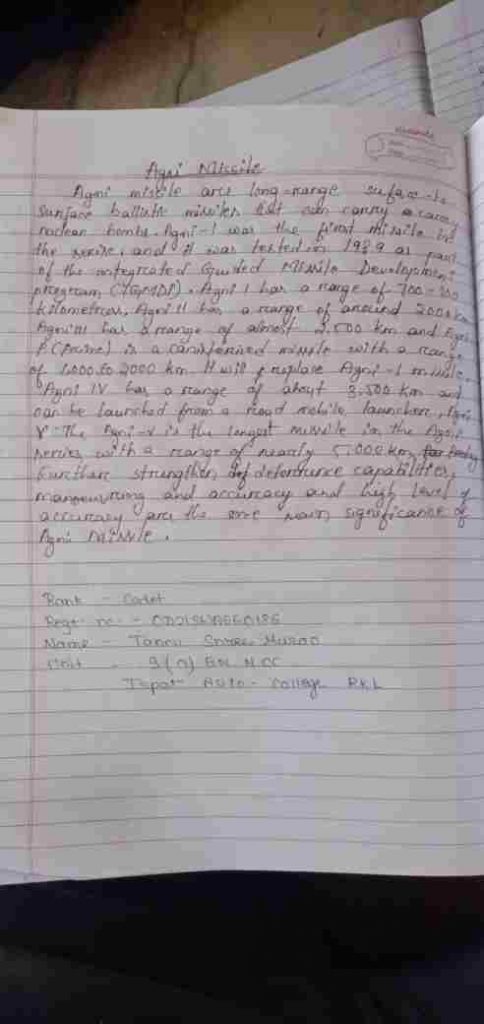 Agni Missile
Agni missile are long-range suface-to
Sunface ballistic missiles that can carry
nuclear bombs. Agni-I was the first missile in
the serise, and it was tested in 1989 as part
of the integrated Guided Missile Development
program (IGMDP). Agni I has a range of 700-
kilometres, Agni II has a range of around 2000 km
Agni III has a range of almost 2,500 km and Agni
P (Prime) is a canisterised missile with a range
of 1,000 to 2000 km. It will replace Agni-I missile.
Agni IV has a range of about 3,500 km and
can be launched from a road mobile launcher, Agni
V - The Agni-V is the longest missile in the Agni
series with a range of nearly 5,000 km
further strengthen deterrence capabilities,
maneuvring and accuracy and high level of
accuracy are the main significance of
Agni Missile.
Rank - Cadet
Regt no. -
Name -
Unit - BN NCC
College RKL